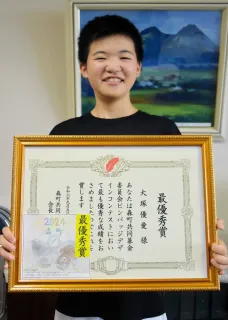 最優秀賞
大塚優愛 様
あなたは森町共同募金
委員会ピンバッジデザ
インコンテストにおい
て最も優秀な成績をお
さめましたのでこれを
賞します
森町共同
会長
2024
最優秀賞